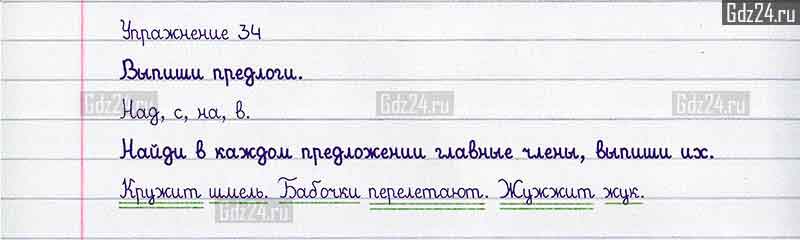 Gdz24.ru
Упражнение 34
Выпиши предлоги.
Gdz24.ru Gdz24.ru Gdz24.ru
Над, с, на, в.
Найди в каждом предложении главные члены, выпиши их.
Кружит шмель. Бабочки перелетают. Жужжит жук.
Gdz24.ru